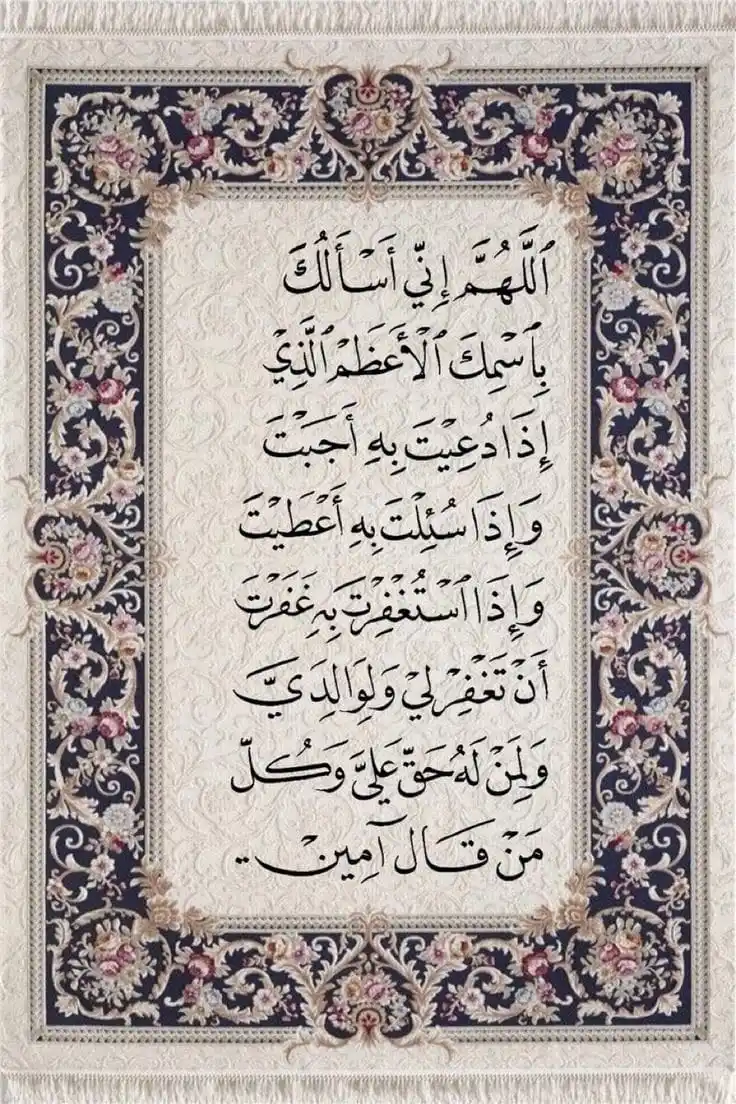 ٱللَّهُمَّ إِنِّي أَسْأَلُكَ
بِٱسْمِكَ ٱلْأَعْظَمْ ٱلَّذِيْ
إِذَا دُعِيْتَ بِهِ أَجَبْتَ
وَإِذَا سُئِلْتَ بِهِ أَعْطَيْتَ
وَإِذَا ٱسْتُغْفِرْتَ بِهِ غَفَرْتَ
أَنْ تَغْفِرْ لِيْ وَلِوَالِدَيَّ
وَلِمَنْ لَهُ حَقٌّ عَلَيَّ وَكُلّ
مَنْ قَالَ آمِينْ..